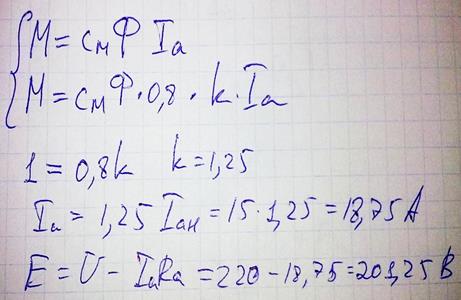 M = cмФ Ia
M = cмФ·0,8 · k·Ia
1 = 0,8k k = 1,25
Ia = 1,25 Iaн = 15·1,25 = 18,75 A
E = U - IaRa = 220 - 18,75 = 201,25 B